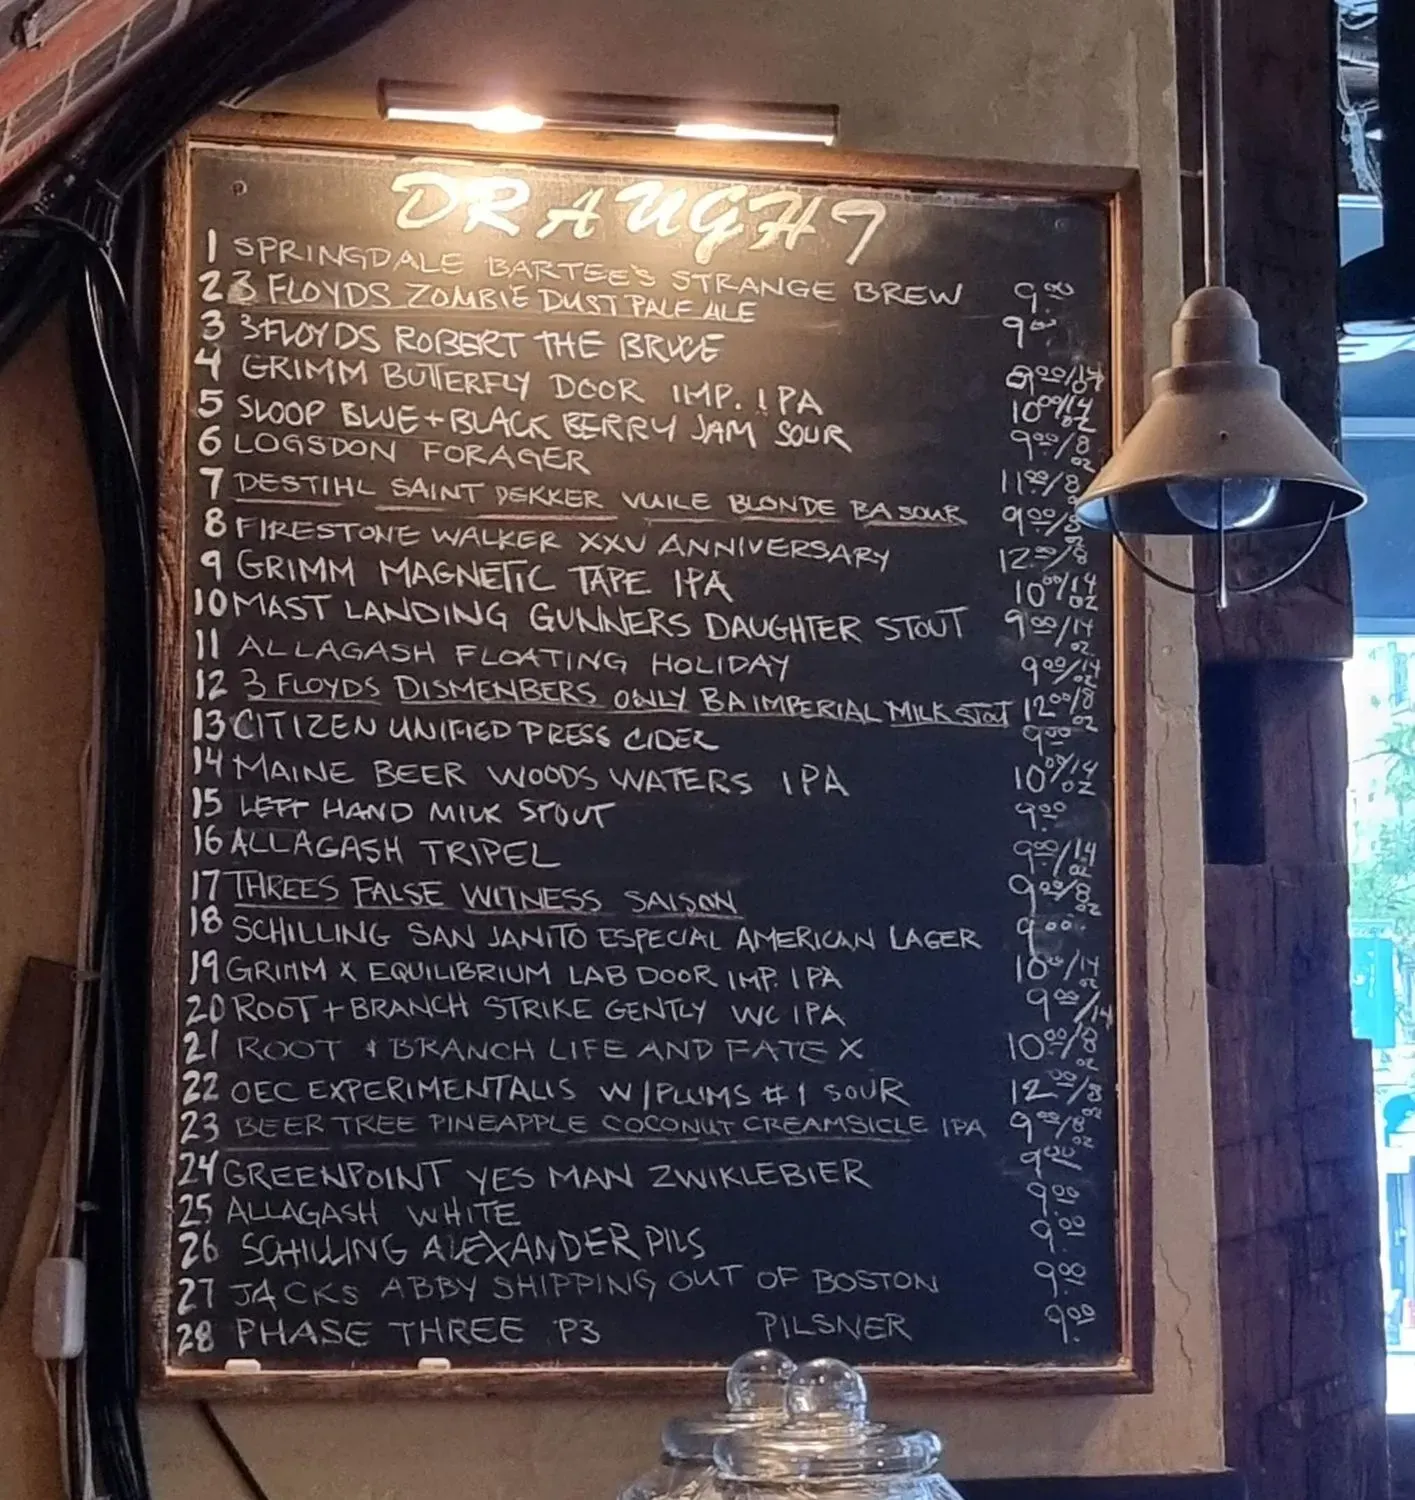 DRAUGHT
1 SPRINGDALE BARTEE'S STRANGE BREW 9.00
2 3 FLOYDS ZOMBIE DUST PALE ALE 9.00
3 3 FLOYDS ROBERT THE BRUCE 9.00/14
4 GRIMM BUTTERFLY DOOR IMP. IPA 10.00/14 OZ
5 SLOOP BLUE + BLACK BERRY JAM SOUR 9.00/8 OZ
6 LOGSDON FORAGER 11.00/8
7 DESTIHL SAINT DEKKER VUILE BLONDE BA SOUR 9.00/8 OZ
8 FIRESTONE WALKER XXV ANNIVERSARY 12.00/8
9 GRIMM MAGNETIC TAPE IPA 10.00/14 OZ
10 MAST LANDING GUNNERS DAUGHTER STOUT 9.00/14 OZ
11 ALLAGASH FLOATING HOLIDAY 9.00/14 OZ
12 3 FLOYDS DISMENBERS ONLY BA IMPERIAL MILK STOUT 12.00/8 OZ
13 CITIZEN UNIFIED PRESS CIDER 9.00
14 MAINE BEER WOODS WATERS IPA 10.00/14 OZ
15 LEFT HAND MILK STOUT 9.00
16 ALLAGASH TRIPEL 9.00/14 OZ
17 THREES FALSE WITNESS SAISON 9.00/8 OZ
18 SCHILLING SAN JANITO ESPECIAL AMERICAN LAGER 9.00
19 GRIMM X EQUILIBRIUM LAB DOOR IMP. IPA 10.00/14 OZ
20 ROOT + BRANCH STRIKE GENTLY WC IPA 9.00/14
21 ROOT & BRANCH LIFE AND FATE X 10.00/8 OZ
22 OEC EXPERIMENTALIS W/PLUMS #1 SOUR 12.00/8 OZ
23 BEER TREE PINEAPPLE COCONUT CREAMSICLE IPA 9.00/8 OZ
24 GREENPOINT YES MAN ZWIKLEBIER 9.00
25 ALLAGASH WHITE 9.00
26 SCHILLING ALEXANDER PILS 9.00
27 JACKS ABBY SHIPPING OUT OF BOSTON 9.00
28 PHASE THREE P3 PILSNER 9.00